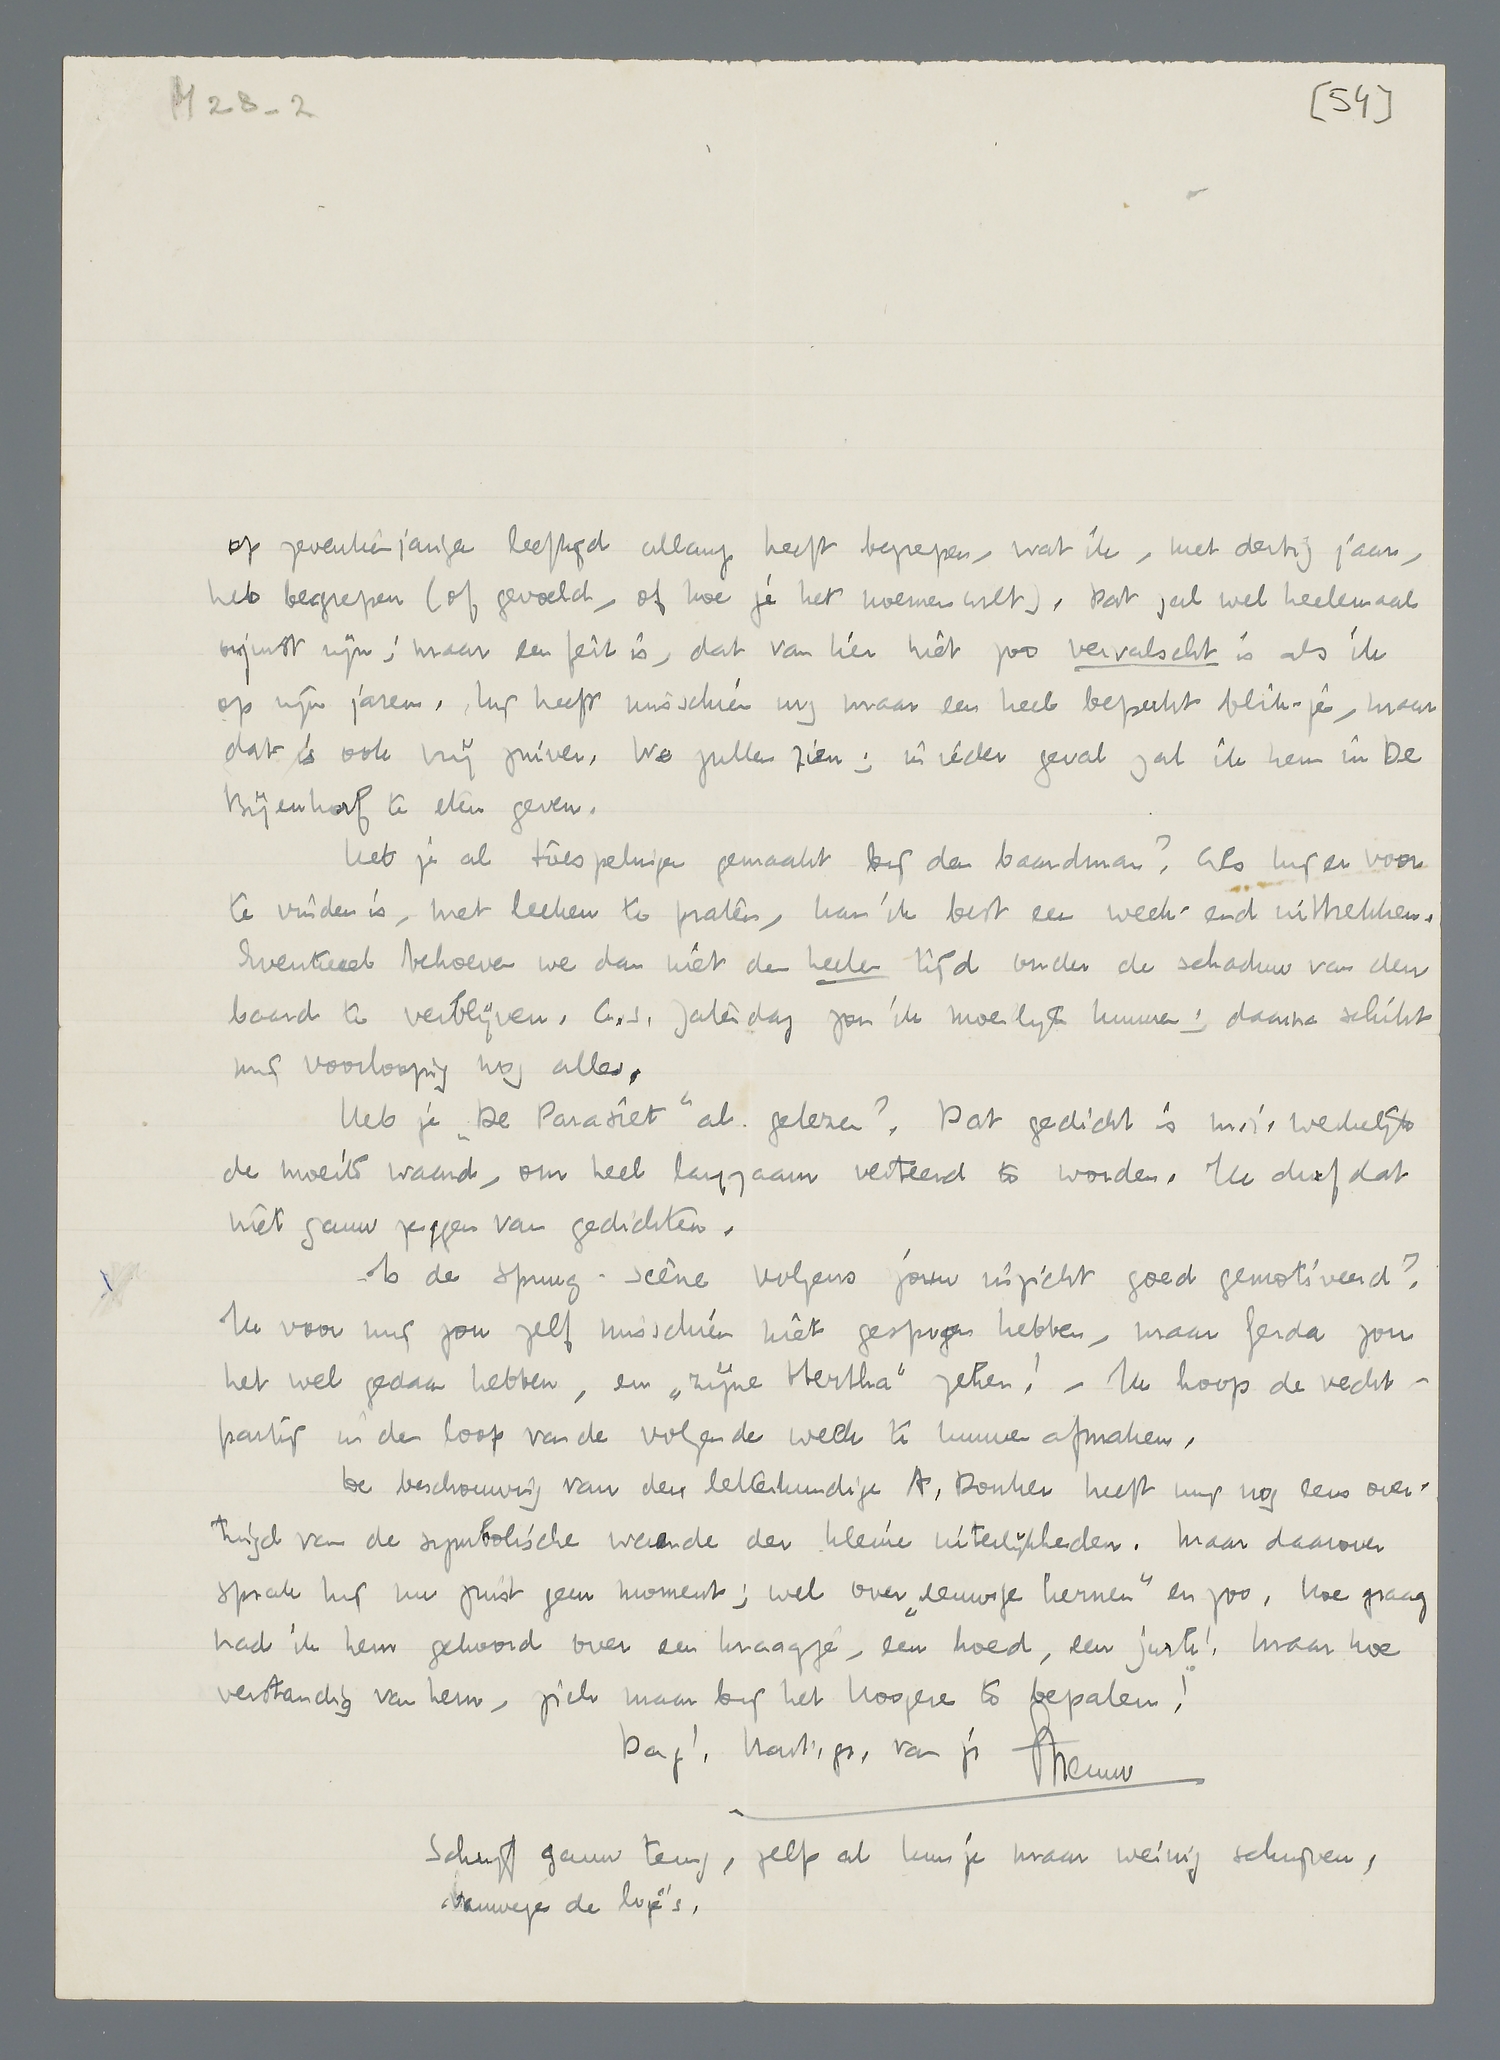 M 28-2
[54]
op zeventienjarigen leeftijd allang heeft begrepen, wat ik, met dertig jaar,
heb begrepen (of gevoeld, of hoe je het noemen wilt). Dat zal wel heelemaal
onjuist zijn; maar een feit is, dat van hier niet zoo vervalscht is als ik
op zijn jaren. Hij heeft misschien nog maar een heel beperkt blik-je, maar
dat is ook vrij zuiver. We zullen zien; in ieder geval zal ik hem in De
Bijenkorf te eten geven.
Heb je al toespelingen gemaakt bij den baardman? Als hij er voor
te vinden is, met leeken te praten, kan ik best een week-end uittrekken.
Eventueel behoeven we dan niet den heelen tijd onder de schaduw van den
baard te verblijven. A.s. Zaterdag zou ik moeilijk kunnen; daarna schikt
mij voorloopig nog alles.
Heb je „De Parasiet" al gelezen? Dat gedicht is m.i. werkelijk
de moeite waard, om heel langzaam verteerd te worden. Ik durf dat
niet gauw zeggen van gedichten.
Is de spuug-scène volgens jouw inzicht goed gemotiveerd?
Ik voor mij zou zelf misschien niet gespogen hebben, maar Ferda zou
het wel gedaan hebben, en „zijne Hertha" zeker! – Ik hoop de vecht-
partij in den loop van de volgende week te kunnen afmaken.
De beschouwing van den letterkundige A. Donker heeft mij nog eens over-
tuigd van de symbolische waarde der kleine uiterlijkheden. Maar daarover
sprak hij nu juist geen moment; wel over „eeuwige kernen" en zoo. Hoe graag
had ik hem gehoord over een kraagje, een hoed, een jurk! Maar hoe
verstandig van hem, zich maar bij het Hoogere te bepalen!
Dag! Hart. gr. van je
Menno
Schrijf gauw terug, zelfs al kun je maar weinig schrijven,
vanwege de logé's.